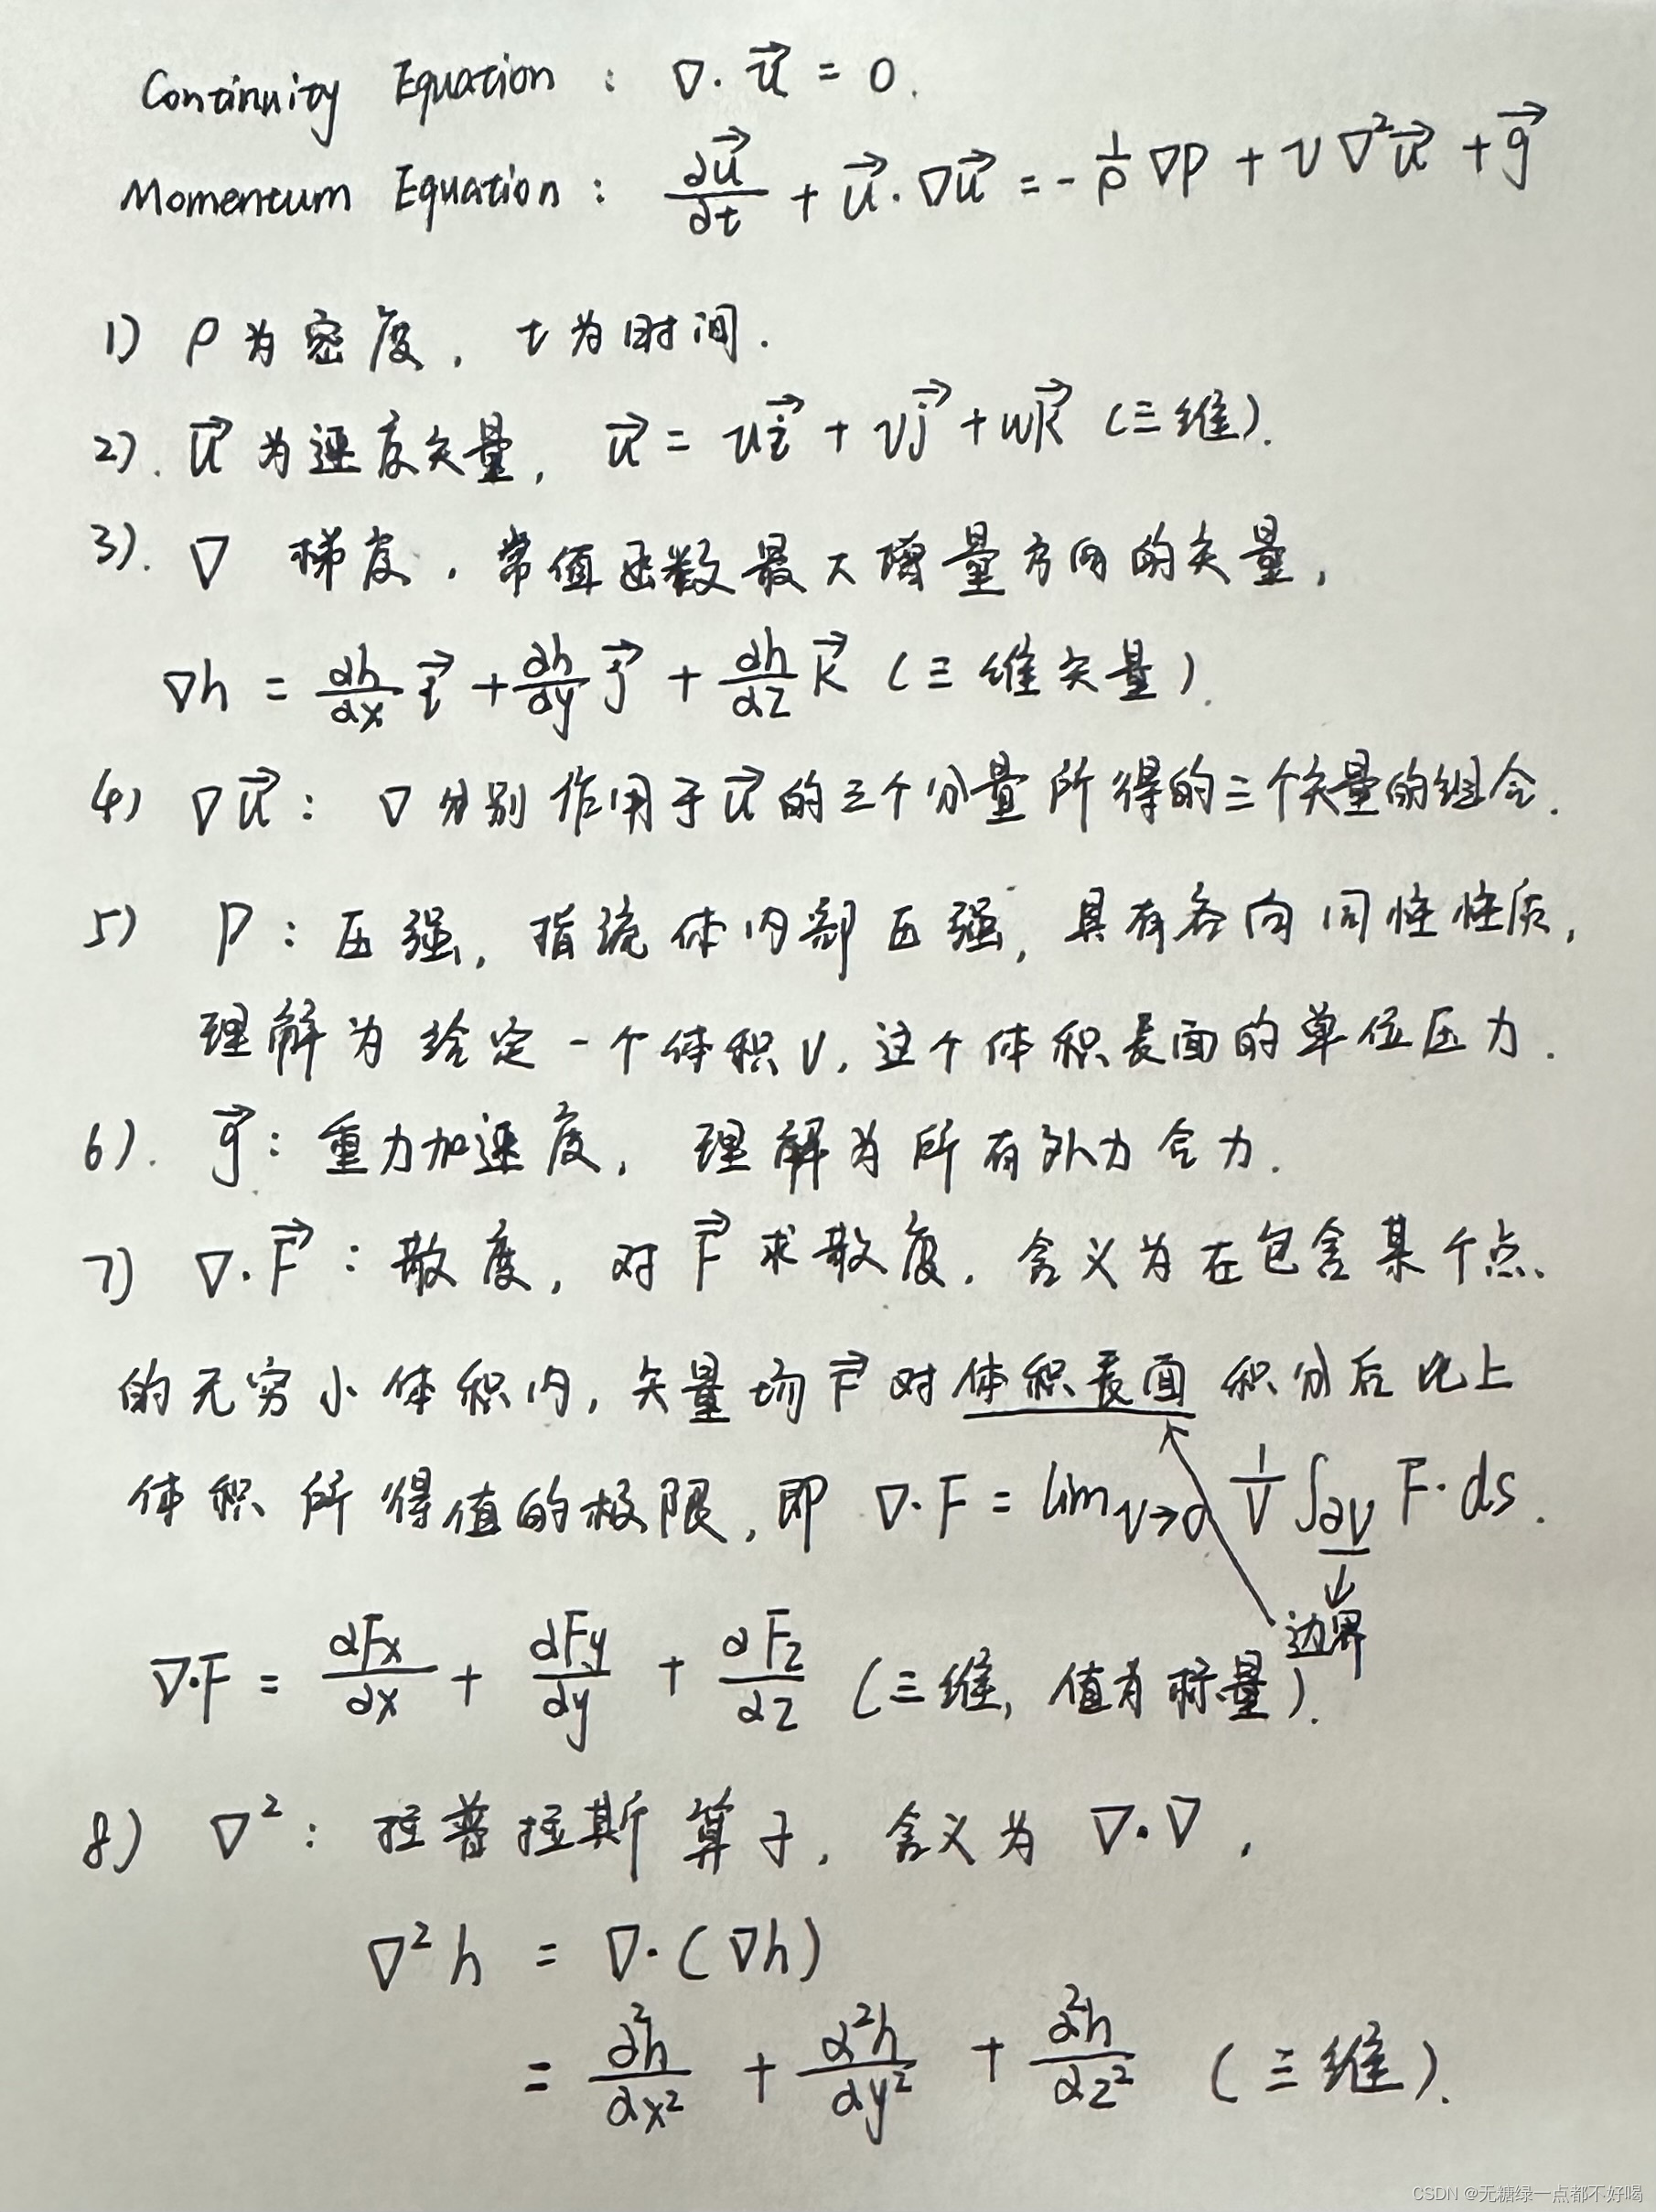 Continuity Equation : ∇·u⃗ = 0.
Momentum Equation : ∂u⃗/∂t + u⃗·∇u⃗ = -1/ρ ∇P + ν∇²u⃗ + g⃗
1) ρ为密度, t为时间.
2). u⃗为速度矢量, u⃗ = ui⃗ + vj⃗ + wk⃗ (三维).
3). ∇ 梯度. 常值函数最大增量方向的矢量,
∇h = ∂h/∂x i⃗ + ∂h/∂y j⃗ + ∂h/∂z k⃗ (三维矢量).
4) ∇u⃗: ∇分别作用于u⃗的三个分量所得的三个矢量的组合.
5) P: 压强, 指流体内部压强, 具有各向同性性质,
理解为给定一个体积V, 这个体积表面的单位压力.
6). g⃗: 重力加速度, 理解为所有外力合力.
7) ∇·F⃗: 散度, 对F⃗求散度, 含义为在包含某个点
的无穷小体积内, 矢量场F⃗对体积表面积分后比上
体积所得值的极限, 即 ∇·F = lim V→0 1/V ∫∂V F·ds.
边界
∇·F = ∂Fx/∂x + ∂Fy/∂y + ∂Fz/∂z (三维, 值为标量).
8) ∇²: 拉普拉斯算子, 含义为 ∇·∇,
∇²h = ∇·(∇h)
= ∂²h/∂x² + ∂²h/∂y² + ∂²h/∂z² (三维).
CSDN @无糖绿一点都不好喝